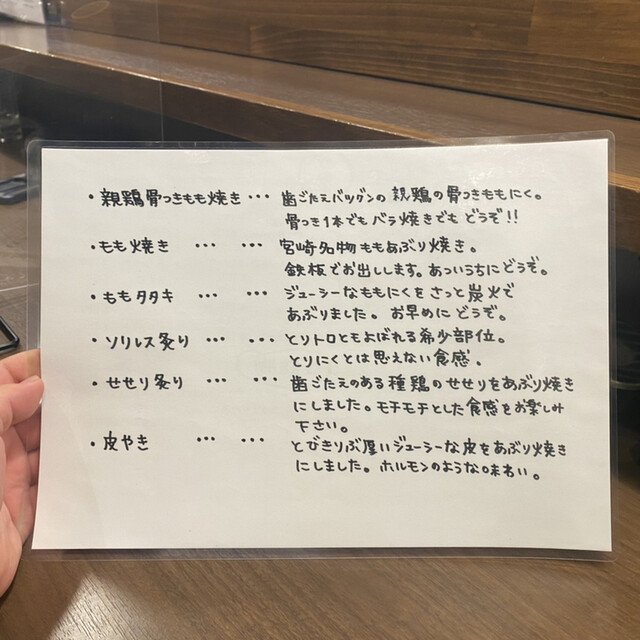 ・親鶏骨つきもも焼き … 歯ごたえバツグンの親鶏の骨つきももにく。
骨つき1本でもバラ焼きでもどうぞ!!
・もも焼き … … 宮崎名物ももあぶり焼き。
鉄板でお出しします。あついうちにどうぞ。
・ももタタキ … … ジューシーなももにくをさっと炭火で
あぶりました。お早めにどうぞ。
・ソリレス炙り … … とりトロともよばれる希少部位。
とりにくとは思えない食感。
・せせり炙り … … 歯ごたえのある種鶏のせせりをあぶり焼き
にしました。モチモチとした食感をお楽しみ
下さい。
・皮やき … … とびきりぶ厚いジューシーな皮をあぶり焼き
にしました。ホルモンのような味わい。